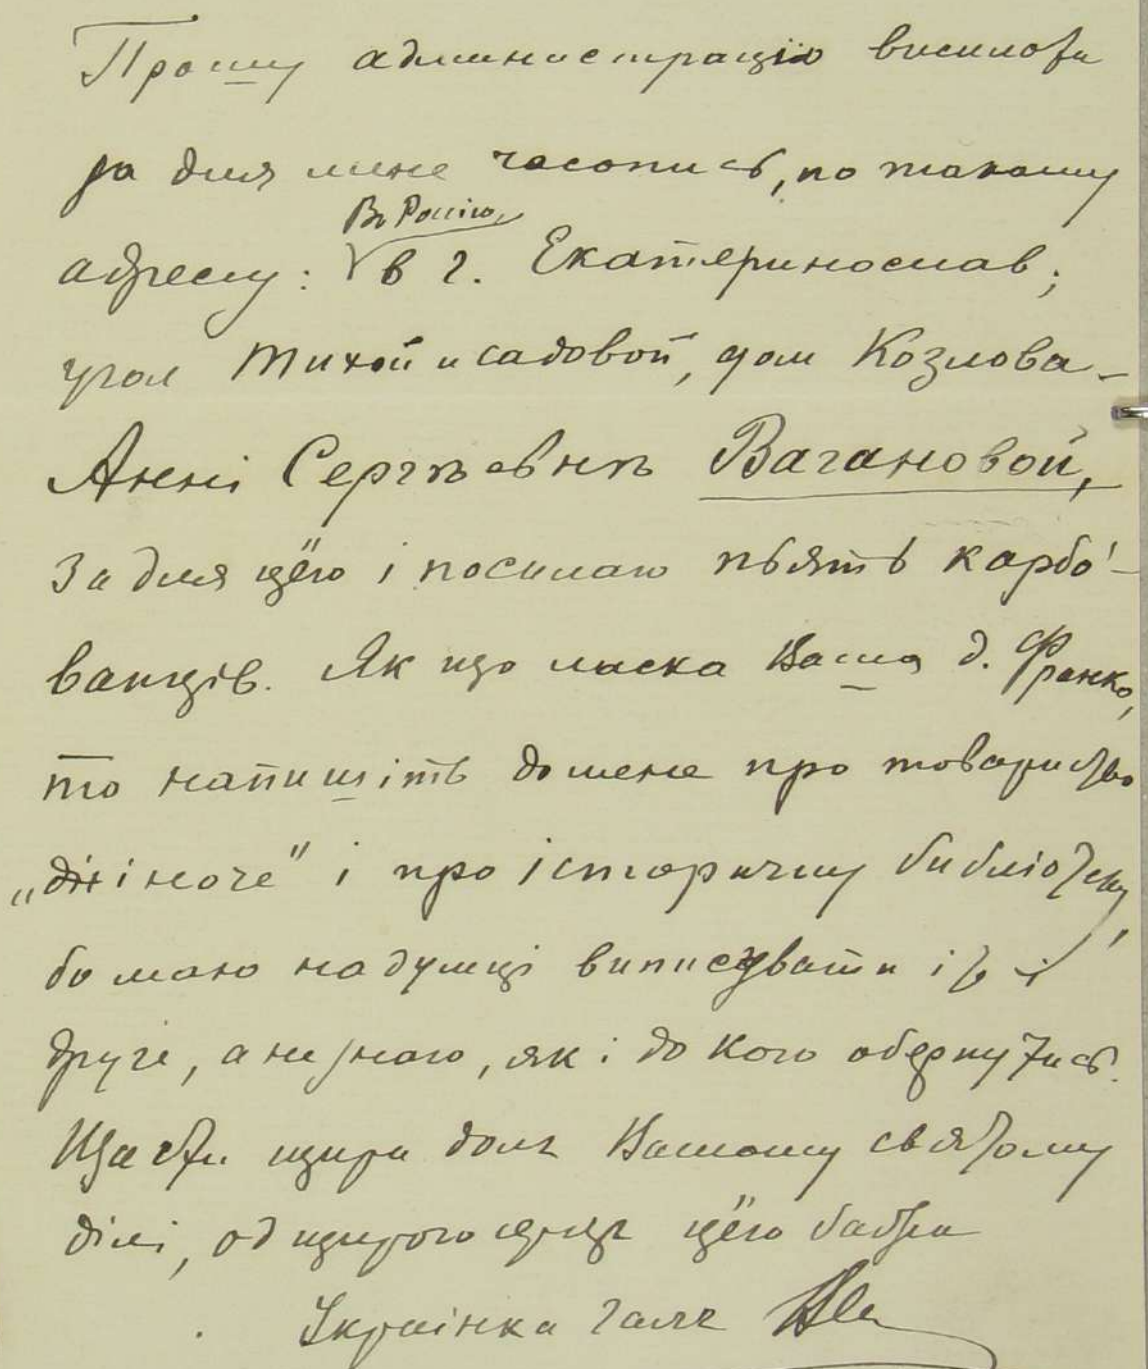 Прошу администрацію висилати
за для мене часопись, по такому
Въ Россію,
адресу: в г. Екатеринослав;
угол Тихой и садовой, дом Козлова –
Анні Сергѣевнѣ Вагановой,
За для цёго і посилаю пьять карбо-
ванців. Як що ласка Ваша д. Франко,
то напишіть до мене про товариство
„жіноче" і про історичну библіотеку,
бо маю на думці виписувати і те і
друге, а не знаю, як і до кого обернутись.
Щастя щира доля Вашому святому
ділі, од щирого серця цёго бажа
Українка Галя